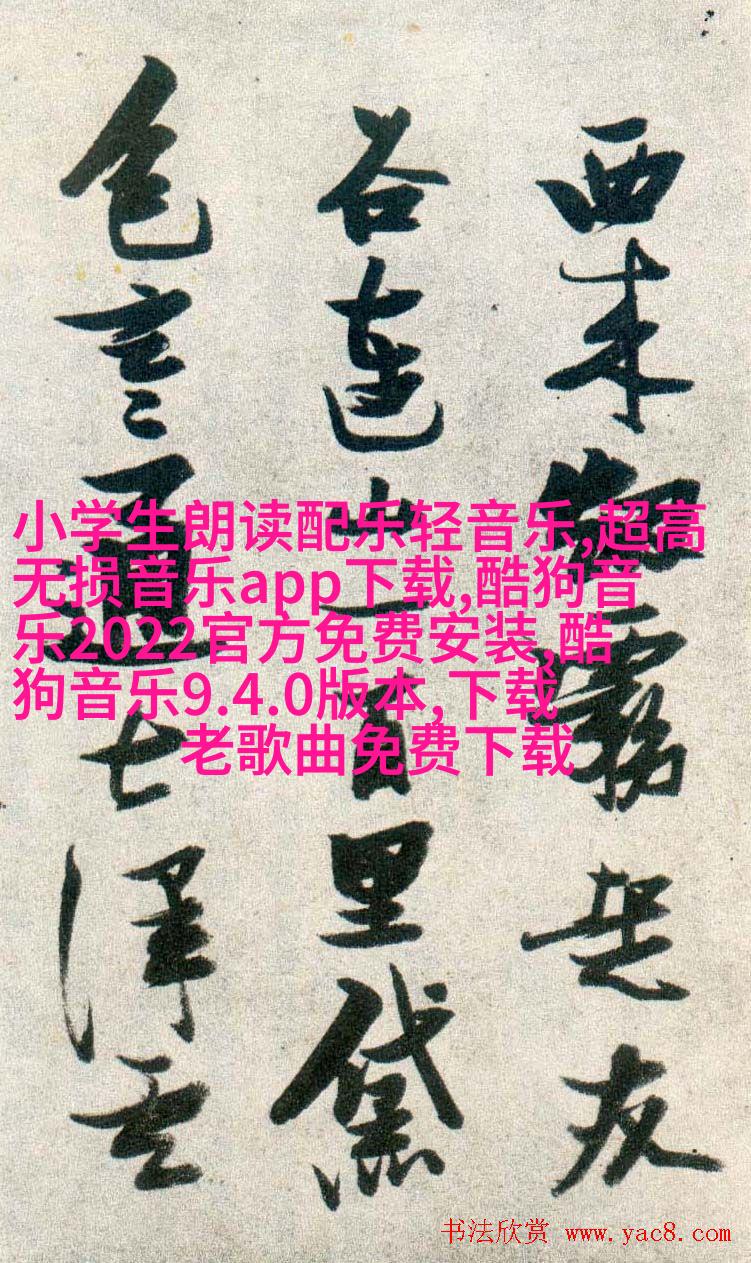 西来烟霧是友
谷連山一百里黛
色言通七澤雲
小学生朗读配乐轻音乐,超高
无损音乐app下载,酷狗音
乐2022官方免费安装,酷
狗音乐9.4.0版本,下载
老歌曲免费下载
书法欣赏 www.yac8.com